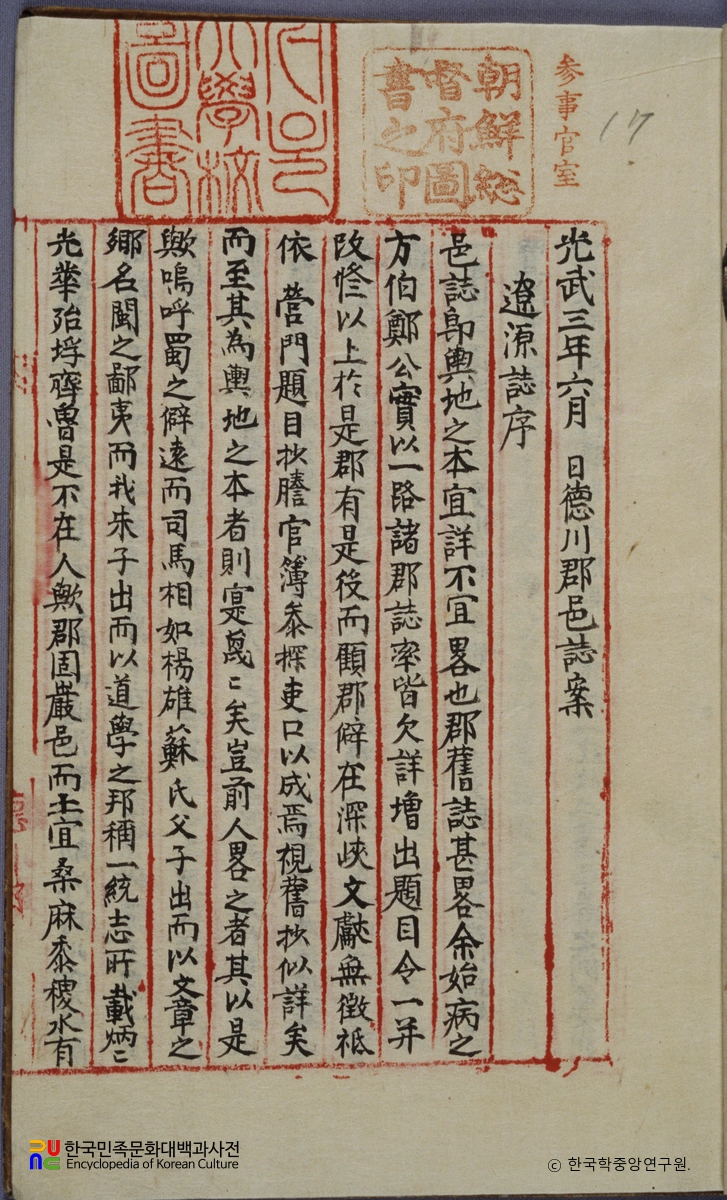 參事官室
17
朝鮮総
督府圖
書之印
大學校
圖書
光武三年六月 日德川郡邑誌案
遼源誌序
邑誌卽輿地之本宜詳不宜畧也郡舊誌甚畧余始病之
方伯鄭公實以一路諸郡誌率皆欠詳增出題目令一并
改修以上於是郡有是役而顧郡僻在深峽文獻無徵祗
依 營門題目抄謄官簿叅探吏口以成焉視舊抄似詳矣
而至其為輿地之本者則寔蔑〻矣豈前人畧之者其以是
歟嗚呼蜀之僻遠而司馬相如楊雄蘇氏父子出而以文章之
鄕名閩之鄙夷而我朱子出而以道學之邦稱一統志所載炳〻
光華殆埒齊魯是不在人歟郡固巖邑而土宜桑麻黍稷水有
한국민족문화대백과사전
Encyclopedia of Korean Culture
© 한국학중앙연구원.